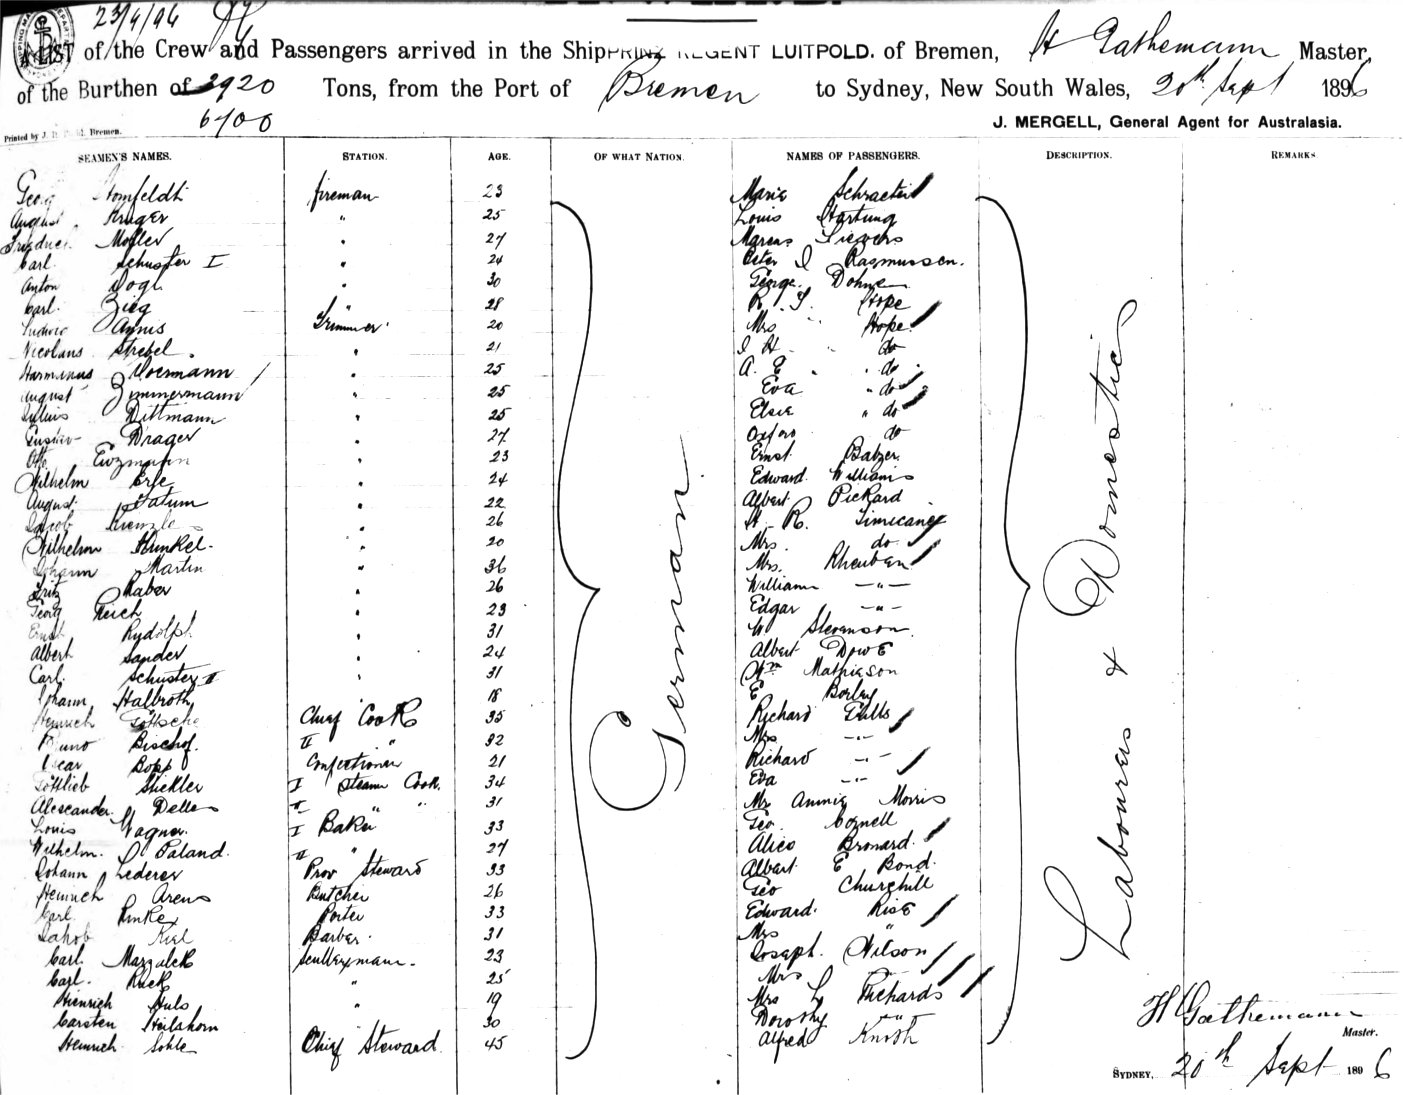 23/9/96
A LIST of the Crew and Passengers arrived in the Ship PRINZ REGENT LUITPOLD. of Bremen, H Gathemann Master,
of the Burthen of 3920 Tons, from the Port of Bremen to Sydney, New South Wales, 20th Sept 1896
6100
J. MERGELL, General Agent for Australasia.
Printed by J. Bremen.
SEAMEN'S NAMES. STATION. AGE. OF WHAT NATION. NAMES OF PASSENGERS. DESCRIPTION. REMARKS
Georg fireman 23 Marie
August Kruger " 25 Louis Hartung
Friedrich " 27 Marcus Sievers
Carl Schuster I " 24 Peter J Rasmussen.
Anton Vogl " 30 George Dohne
Carl " 28 R. Hope
Ludwig Trimmer 20 Mrs Hope
Nicolaus Strebel. " 21 J H do
Harmanus " 25 A. E. " do
August Zimmermann " 25 Eva " do
Julius Dittmann " 25 Elsie " do
Gustav Drager " 27 do
Otto " 23 Ernst Balzer.
Wilhelm Erle " 24 Edward Williams
August " 22 Albert Pickard
Jacob Kienzle " 26 H R.
Wilhelm Kunkel. " 20 Mrs. do
Johann Martin " 36 Mrs. Rheuben
Fritz Raber " 26 William — " —
Georg Reich " 23 Edgar — " —
Ernst Rudolph " 31 W Stevenson.
Albert Sander " 24 Albert Dowe
Carl. Schuster II " 31 Wm Mathieson
Johann Halbroth " 18 E Borley
Heinrich Chief Cook 35 Richard
Bruno Bischof. II " 32 Mrs — " —
Oscar Bopp Confectioner 21 Richard — " —
Gottlieb Stickler I Steam Cook. 34 Eva — " —
Alexander II " " 31 Annie Morris
Louis Wagner. I Baker 33 Geo Cornell
Wilhelm. Paland. II " 27 Alice Bronard.
Johann Lederer Prov Steward 33 Albert E Bond.
Heinrich Arens Butcher 26 Geo Churchill
Carl Rinke Porter 33 Edward. Rise
Jakob Kiel Barber. 31 Mrs "
Carl. Scullery man. 23 Joseph. Wilson
Carl. Ruck " 25 Mrs "
Heinrich Huls " 19 Mrs L Richards
Carsten Heilshorn " 30 Dorothy " "
Heinrich Sohle Chief Steward 45 Alfred
German
Labourers & Domestics
H Gathemann
Master.
SYDNEY, 20th Sept 1896